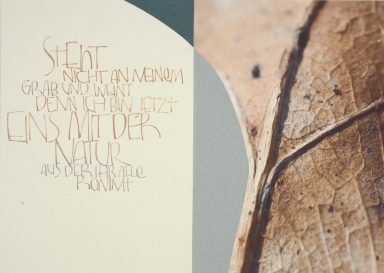 STEHT
NICHT AN MEINEM
GRAB UND WEINT
DENN ICH BIN JETZT
EINS MIT DER
NATUR
AUS DER IHR ALLE
KOMMT